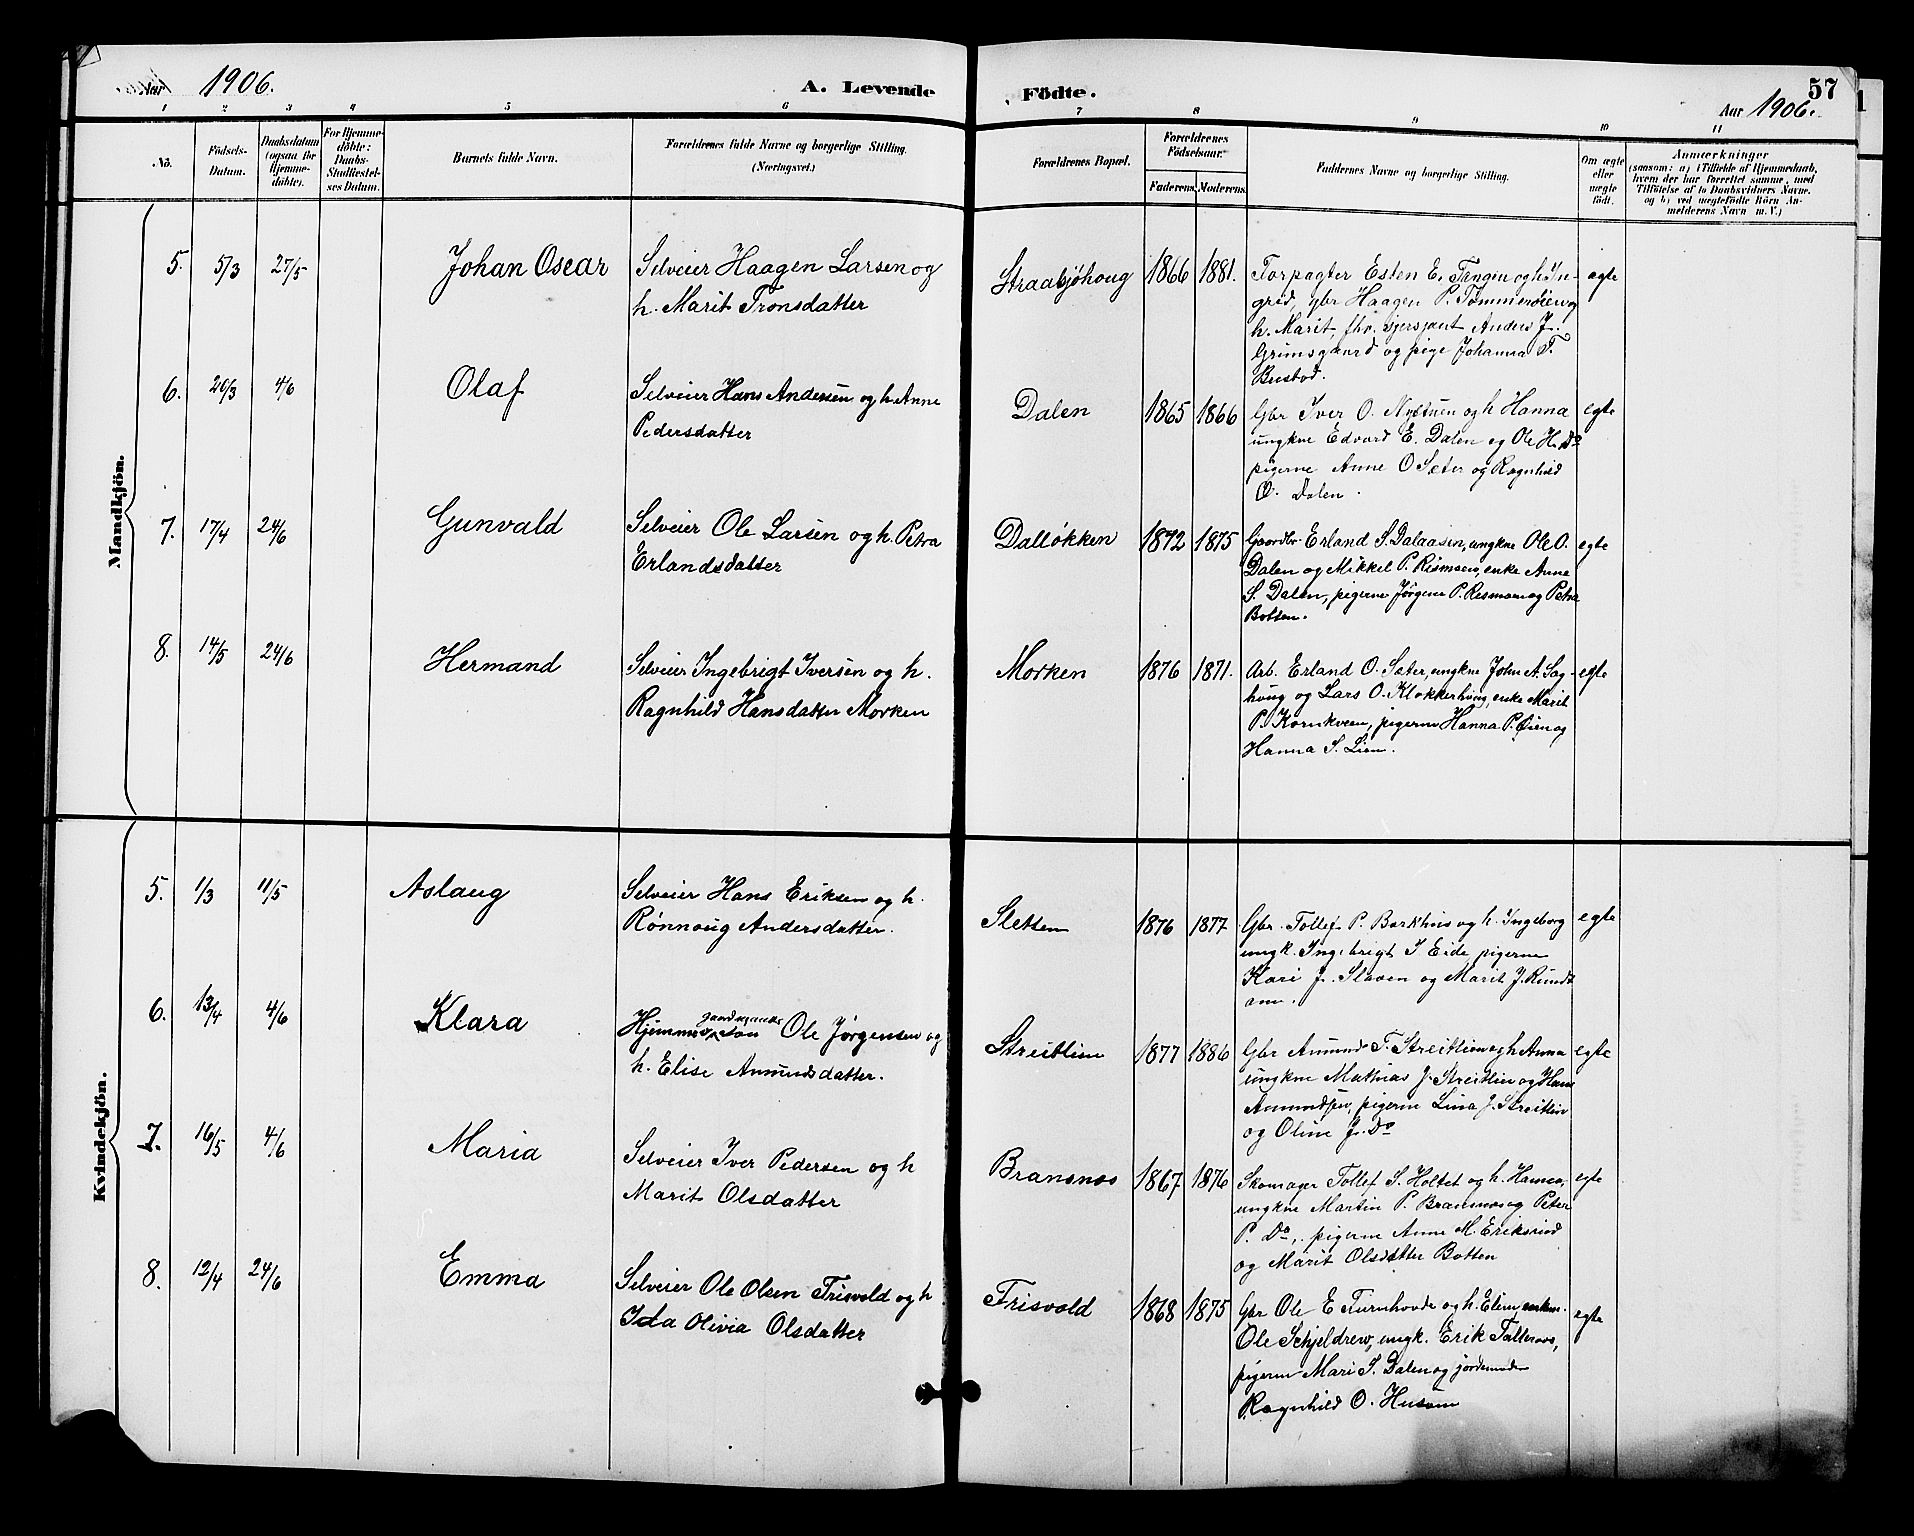 Aar 1906.
A. Levende
Födte.
57
Aar 1906.
1 2 3 4 5 6 7 8 9 10 11
No.
Födsels-
Datum.
Daabsdatum
(ogsaa for
Hjemme-
döbte).
For Hjemme-
döbte:
Daabs-
Stadfæstel-
ses Datum.
Barnets fulde Navn.
Forældrenes fulde Navne og borgerlige Stilling.
(Næringsvei.)
Forældrenes Bopæl.
Forældrenes
Födselsaar.
Faderens.
Moderens.
Faddernes Navne og borgerlige Stilling.
Om ægte
eller
uægte
födt.
Anmærkninger
(saasom: a) i Tilfælde af Hjemmedaab,
hvem der har forrettet samme, med
Tilföielse af to Daabsvidners Navne,
og b) ved uægtefödte Börn An-
melderens Navn m. V.)
Mandkjön.
5. 5/3 27/5 Johan Oscar
Selveier Haagen Larsen og
h. Marit Tronsdatter
Straabjøhoug 1866 1881.
Forpagter Esten E. Tangen og h In-
grid, gbr Haagen P. Tømmerøien og
h. Marit, fhv. sjersjant Anders J.
Grimsgaard og pige Johanna T.
Bustad.
egte
6. 20/3 4/6 Olaf
Selveier Hans Andersen og h Anne
Pedersdatter
Dalen 1865 1866
Gbr Iver O. Nystuen og h Hanna
ungkne Edvard E. Dalen og Ole H. Do
pigerne Anne O Sæter og Ragnhild
O. Dalen.
egte
7. 17/4 24/6 Gunvald
Selveier Ole Larsen og h. Petra
Erlandsdatter
Falløkken 1872 1875
Gaardbr. Erland S. Dalaasen, ungkne Ole O.
Dalen og Mikkel P. Rismoen, enke Anne
S. Dalen, pigerne Jørgine P. Rismoen og Petra
Botten.
egte
8. 14/5 24/6 Hermand
Selveier Ingebrigt Iversen og h.
Ragnhild Hansdatter Morken
Morken 1876 1871.
Arb. Erland O. Sæter, ungkne John A. Sag-
houg og Lars O. Klokkerhoug, enke Marit
P. Kornkveen, pigerne Hanna P. Øien og
Hanna S. Lien.
egte
Kvindekjön.
5. 1/3 11/5 Aslaug
Selveier Hans Eriksen og h.
Rønnoug Andersdatter.
Sletten 1876 1877
Gbr. Tollef P. Barkhus og h. Ingeborg
ungk. Ingebrigt I Eide, pigerne
Kari J. Slaaen og Marit J. Rundt
om.
egte
6. 13/4 4/6 Klara
gaardmands
Hjemmev. søn Ole Jørgensen og
h. Elise Amundsdatter.
Streitlien 1877 1886
Gbr Amund T. Streitlien og h Anna
ungkne Mathias J. Streitlien og Hans
Amundsen, pigerne Lina J. Streitlien
og Oline J. Do
egte
7. 16/5 4/6 Maria
Selveier Iver Pedersen og h
Marit Olsdatter
Bransnos 1867 1876
Skomager Tollef S. Holtet og h. Hanna,
ungkne Martin P. Bransnos og Peter
P. Do, pigerne Anne M. Eriksrud
og Marit Olsdatter Botten
egte
8. 12/4 24/6 Emma
Selveier Ole Olsen Frisvold og h
Ida Olivia Olsdatter
Frisvold 1868 1875
Gbr Ole E Turnhovde og h. Elin, enkm.
Ole Schjeldrew, ungk. Erik Tolleraas,
pigerne Mari S. Dalen og jordemoder
Ragnhild O. Husom
egte